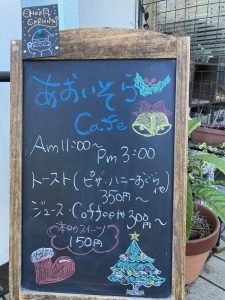 あおいそら
Cafe
Am11:00〜
Pm 3:00
トースト(ピザ・ハニーあぐら
350円〜
ジュース・Coffee他300円〜
本日のスイーツ
150円